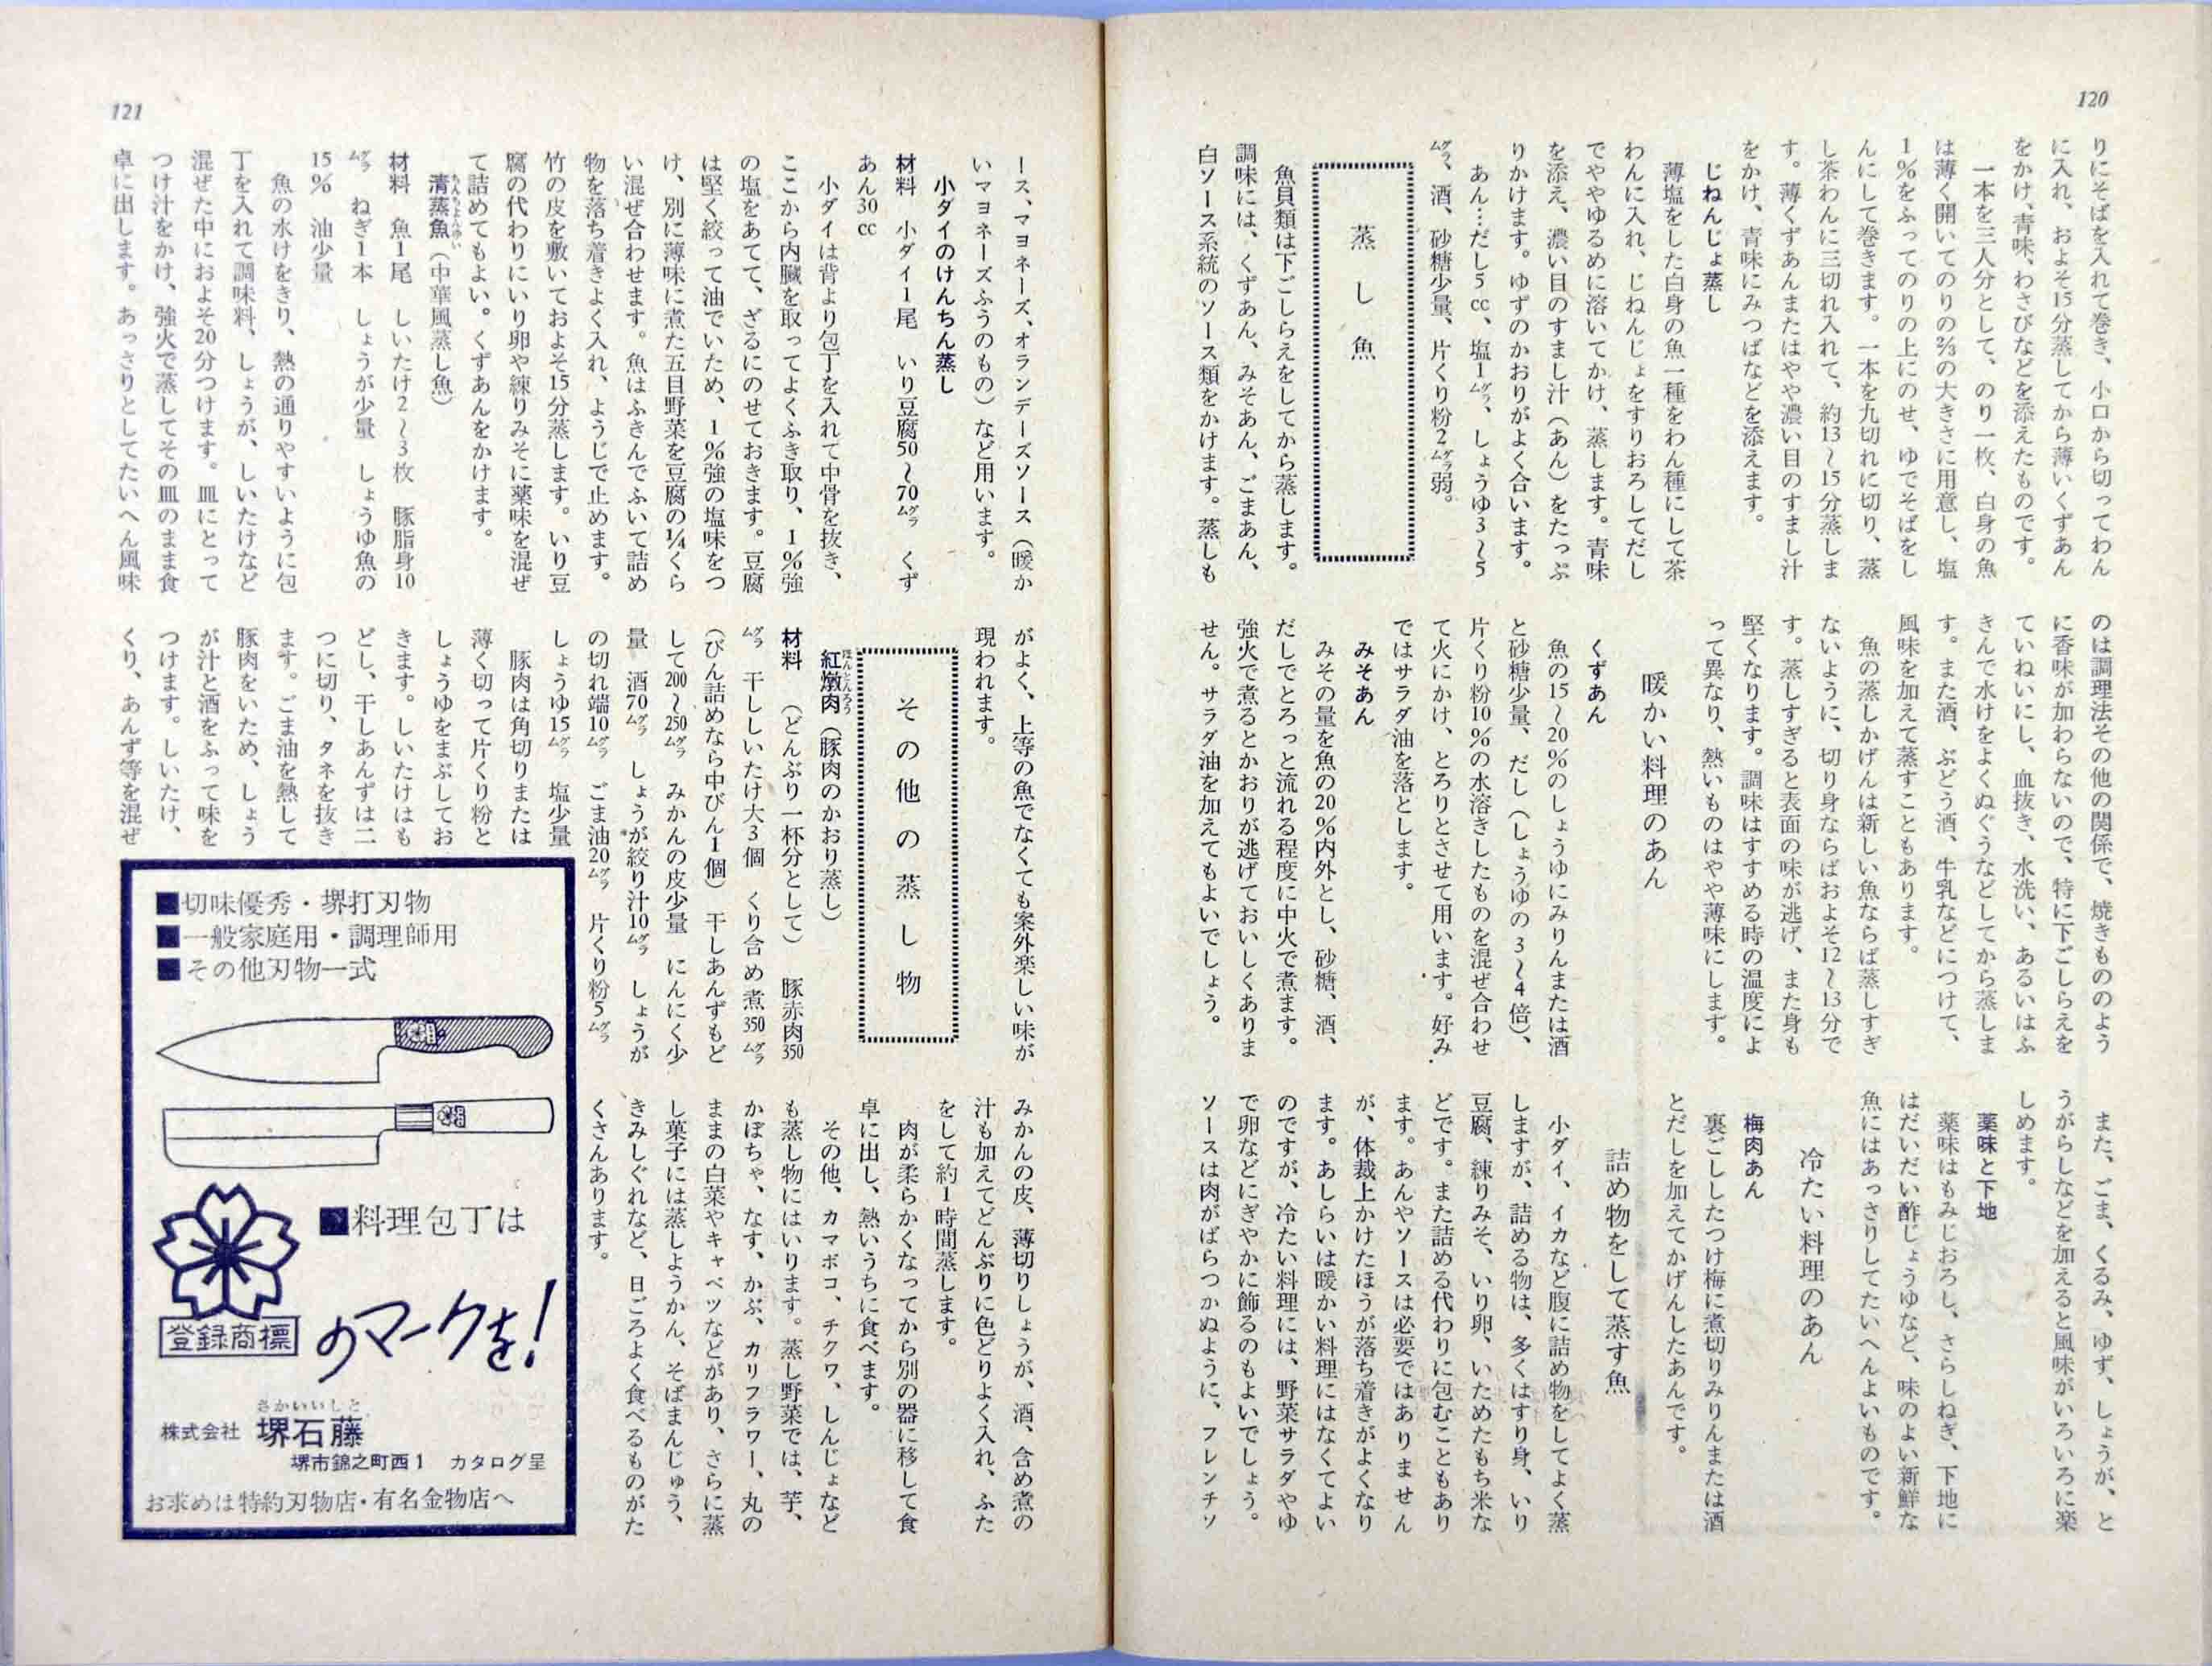 120
りにそばを入れて巻き、小口から切ってわん
に入れ、およそ15分蒸してから薄いくずあん
をかけ、青味、わさびなどを添えたものです。
一本を三人分として、のり一枚、白身の魚
は薄く開いてのりの⅔の大きさに用意し、塩
1%をふってのりの上にのせ、ゆでそばをし
んにして巻きます。一本を九切れに切り、蒸
し茶わんに三切れ入れて、約13〜15分蒸しま
す。薄くずあんまたはやや濃い目のすまし汁
をかけ、青味にみつばなどを添えます。
じねんじょ蒸し
薄塩をした白身の魚一種をわん種にして茶
わんに入れ、じねんじょをすりおろしてだし
でややゆるめに溶いてかけ、蒸します。青味
を添え、濃い目のすまし汁（あん）をたっぷ
りかけます。ゆずのかおりがよく合います。
あん…だし5cc、塩1グラム、しょうゆ3〜5
グラム、酒、砂糖少量、片くり粉2グラム弱。
蒸し魚
魚貝類は下ごしらえをしてから蒸します。
調味には、くずあん、みそあん、ごまあん、
白ソース系統のソース類をかけます。蒸しも
のは調理法その他の関係で、焼きもののよう
に香味が加わらないので、特に下ごしらえを
ていねいにし、血抜き、水洗い、あるいはふ
きんで水けをよくぬぐうなどしてから蒸しま
す。また酒、ぶどう酒、牛乳などにつけて、
風味を加えて蒸すこともあります。
魚の蒸しかげんは新しい魚ならば蒸しすぎ
ないように、切り身ならばおよそ12〜13分で
す。蒸しすぎると表面の味が逃げ、また身も
堅くなります。調味はすすめる時の温度によ
って異なり、熱いものはやや薄味にします。
暖かい料理のあん
くずあん
魚の15〜20%のしょうゆにみりんまたは酒
と砂糖少量、だし（しょうゆの3〜4倍）、
片くり粉10%の水溶きしたものを混ぜ合わせ
て火にかけ、とろりとさせて用います。好み
ではサラダ油を落とします。
みそあん
みその量を魚の20%内外とし、砂糖、酒、
だしでとろっと流れる程度に中火で煮ます。
強火で煮るとかおりが逃げておいしくありま
せん。サラダ油を加えてもよいでしょう。
また、ごま、くるみ、ゆず、しょうが、と
うがらしなどを加えると風味がいろいろに楽
しめます。
薬味と下地
薬味はもみじおろし、さらしねぎ、下地に
はだいだい酢じょうゆなど、味のよい新鮮な
魚にはあっさりしてたいへんよいものです。
冷たい料理のあん
梅肉あん
裏ごししたつけ梅に煮切りみりんまたは酒
とだしを加えてかげんしたあんです。
詰め物をして蒸す魚
小ダイ、イカなど腹に詰め物をしてよく蒸
しますが、詰める物は、多くはすり身、いり
豆腐、練りみそ、いり卵、いためたもち米な
どです。また詰める代わりに包むこともあり
ます。あんやソースは必要ではありません
が、体裁上かけたほうが落ち着きがよくなり
ます。あしらいは暖かい料理にはなくてよい
のですが、冷たい料理には、野菜サラダやゆ
で卵などにぎやかに飾るのもよいでしょう。
ソースは肉がばらつかぬように、フレンチソ
121
ース、マヨネーズ、オランデーズソース（暖か
いマヨネーズふうのもの）など用います。
小ダイのけんちん蒸し
材料 小ダイ1尾 いり豆腐50〜70グラム くず
あん30cc
小ダイは背より包丁を入れて中骨を抜き、
ここから内臓を取ってよくふき取り、1%強
の塩をあてて、ざるにのせておきます。豆腐
は堅く絞って油でいため、1%強の塩味をつ
け、別に薄味に煮た五目野菜を豆腐の¼くら
い混ぜ合わせます。魚はふきんでふいて詰め
物を落ち着きよく入れ、ようじで止めます。
竹の皮を敷いておよそ15分蒸します。いり豆
腐の代わりにいり卵や練りみそに薬味を混ぜ
て詰めてもよい。くずあんをかけます。
清蒸魚（中華風蒸し魚）
材料 魚1尾 しいたけ2〜3枚 豚脂身10
グラム ねぎ1本 しょうが少量 しょうゆ魚の
15% 油少量
魚の水けをきり、熱の通りやすいように包
丁を入れて調味料、しょうが、しいたけなど
混ぜた中におよそ20分つけます。皿にとって
つけ汁をかけ、強火で蒸してその皿のまま食
卓に出します。あっさりとしてたいへん風味
がよく、上等の魚でなくても案外楽しい味が
現われます。
その他の蒸し物
紅燉肉（豚肉のかおり蒸し）
材料 （どんぶり一杯分として） 豚赤肉350
グラム 干ししいたけ大3個 くり含め煮350グラム
（びん詰めなら中びん1個） 干しあんずもど
して200〜250グラム みかんの皮少量 にんにく少
量 酒70グラム しょうが絞り汁10グラム しょうが
の切れ端10グラム ごま油20グラム 片くり粉5グラム
しょうゆ15グラム 塩少量
豚肉は角切りまたは
薄く切って片くり粉と
しょうゆをまぶしてお
きます。しいたけはも
どし、干しあんずは二
つに切り、タネを抜き
ます。ごま油を熱して
豚肉をいため、しょう
が汁と酒をふって味を
つけます。しいたけ、
くり、あんず等を混ぜ
みかんの皮、薄切りしょうが、酒、含め煮の
汁も加えてどんぶりに色どりよく入れ、ふた
をして約1時間蒸します。
肉が柔らかくなってから別の器に移して食
卓に出し、熱いうちに食べます。
その他、カマボコ、チクワ、しんじょなど
も蒸し物にはいります。蒸し野菜では、芋、
かぼちゃ、なす、かぶ、カリフラワー、丸の
ままの白菜やキャベツなどがあり、さらに蒸
し菓子には蒸しようかん、そばまんじゅう、
きみしぐれなど、日ごろよく食べるものがた
くさんあります。
■切味優秀・堺打刃物
■一般家庭用・調理師用
■その他刃物一式
■料理包丁は
のマークを!
登録商標
さかいいしとう
株式会社 堺石藤
堺市錦之町西1 カタログ呈
お求めは特約刃物店・有名金物店へ